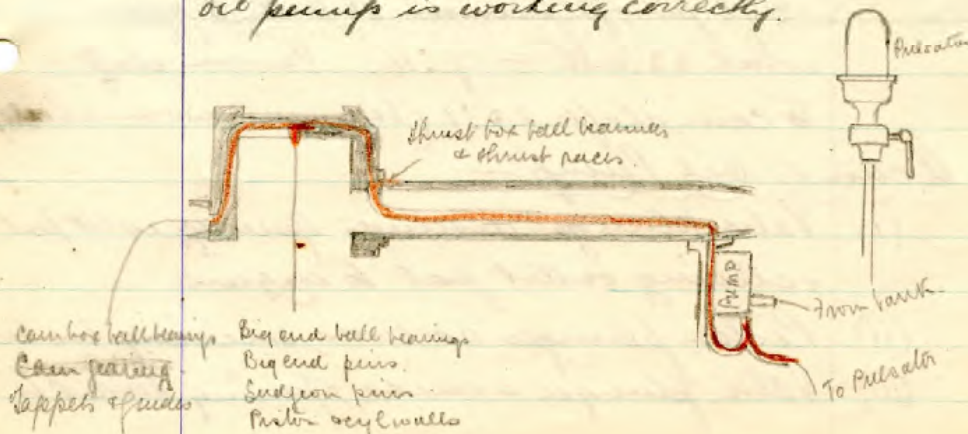 oil pump is working correctly.
Pulsator
thrust box ball bearings
& thrust races.
PUMP
From tank
To Pulsator
Cam box ball bearings
Cam gearing
Tappets & guides
Big end ball bearings
Big end pins.
Gudgeon pins
Piston & cyl walls